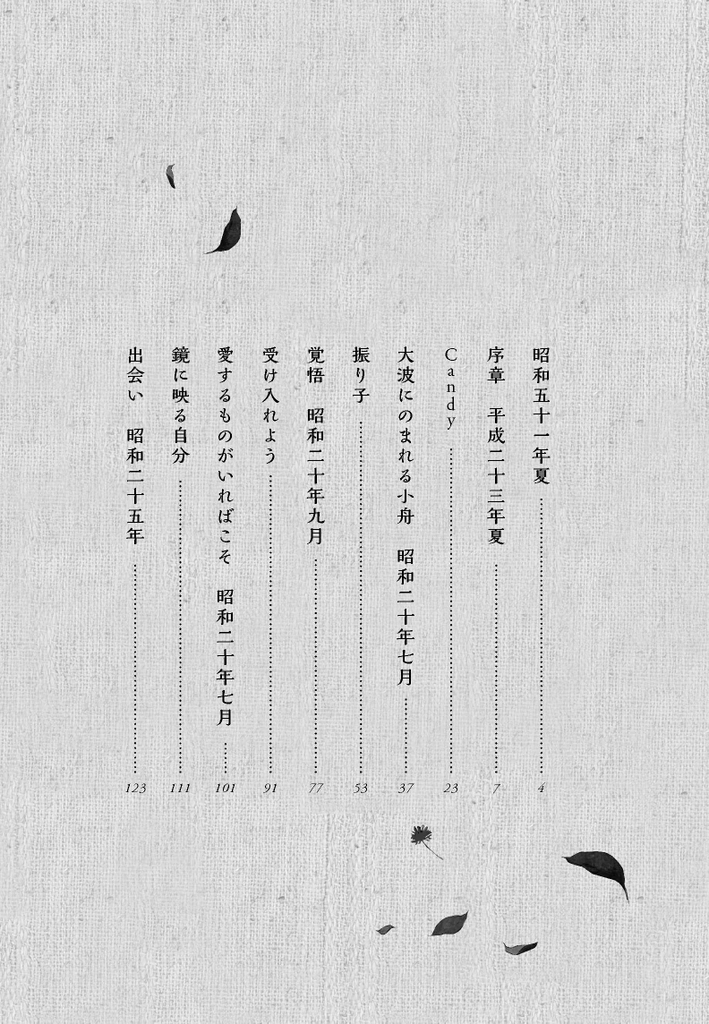 昭和五十一年夏 4
序章　平成二十三年夏 7
Candy 23
大波にのまれる小舟　昭和二十年七月 37
振り子 53
覚悟　昭和二十年九月 77
受け入れよう 91
愛するものがいればこそ　昭和二十年七月 101
鏡に映る自分 111
出会い　昭和二十五年 123